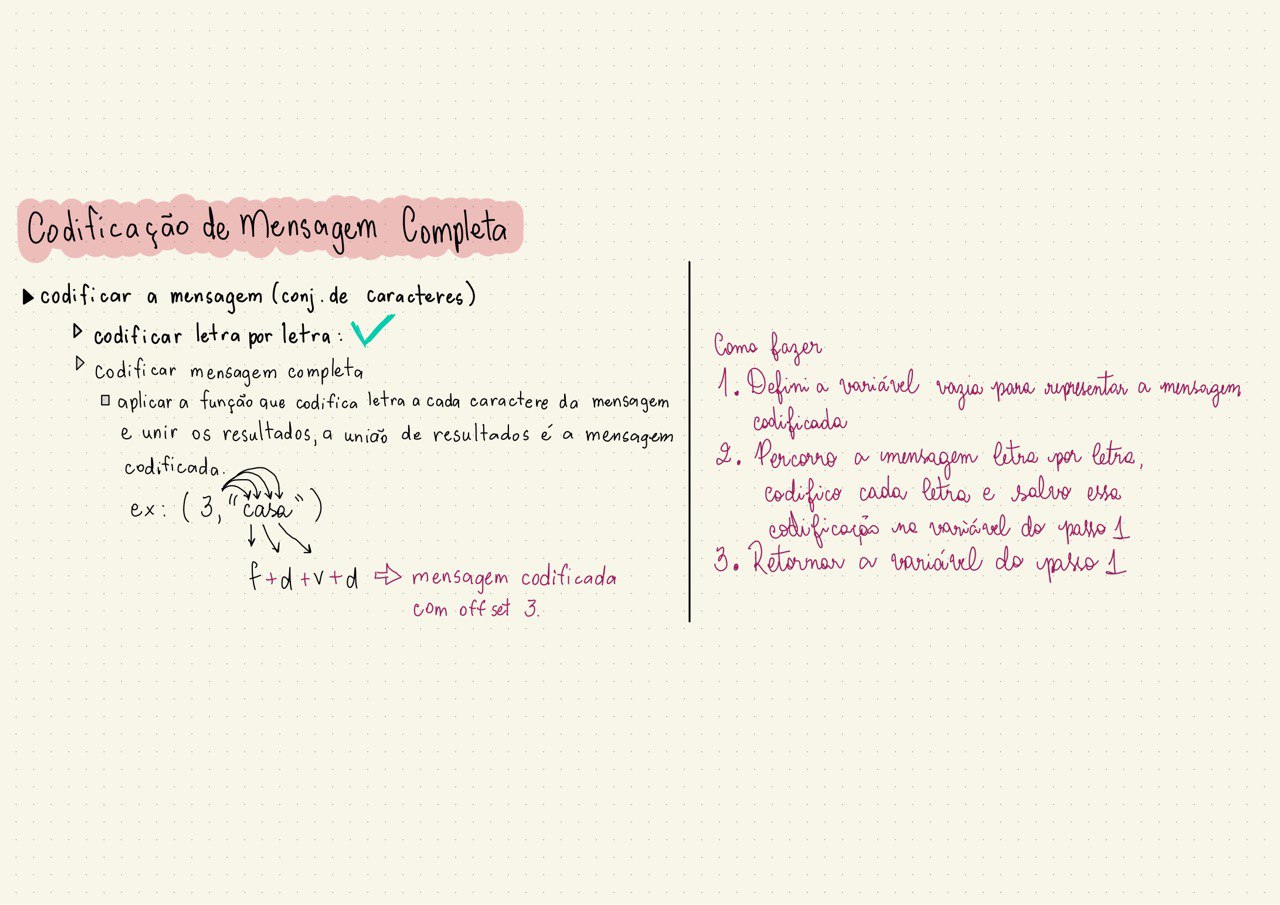 Codificação de Mensagem Completa
codificar a mensagem (conj. de caracteres)
codificar letra por letra:
codificar mensagem completa
aplicar a função que codifica letra a cada caractere da mensagem
e unir os resultados, a união de resultados é a mensagem
codificada.
ex: ( 3, "casa" )
f+d+v+d ⇨ mensagem codificada
com offset 3.
Como fazer
1. Defini a variável vazia para representar a mensagem
codificada
2. Percorro a mensagem letra por letra,
codifico cada letra e salvo essa
codificação na variável do passo 1
3. Retornar a variável do passo 1